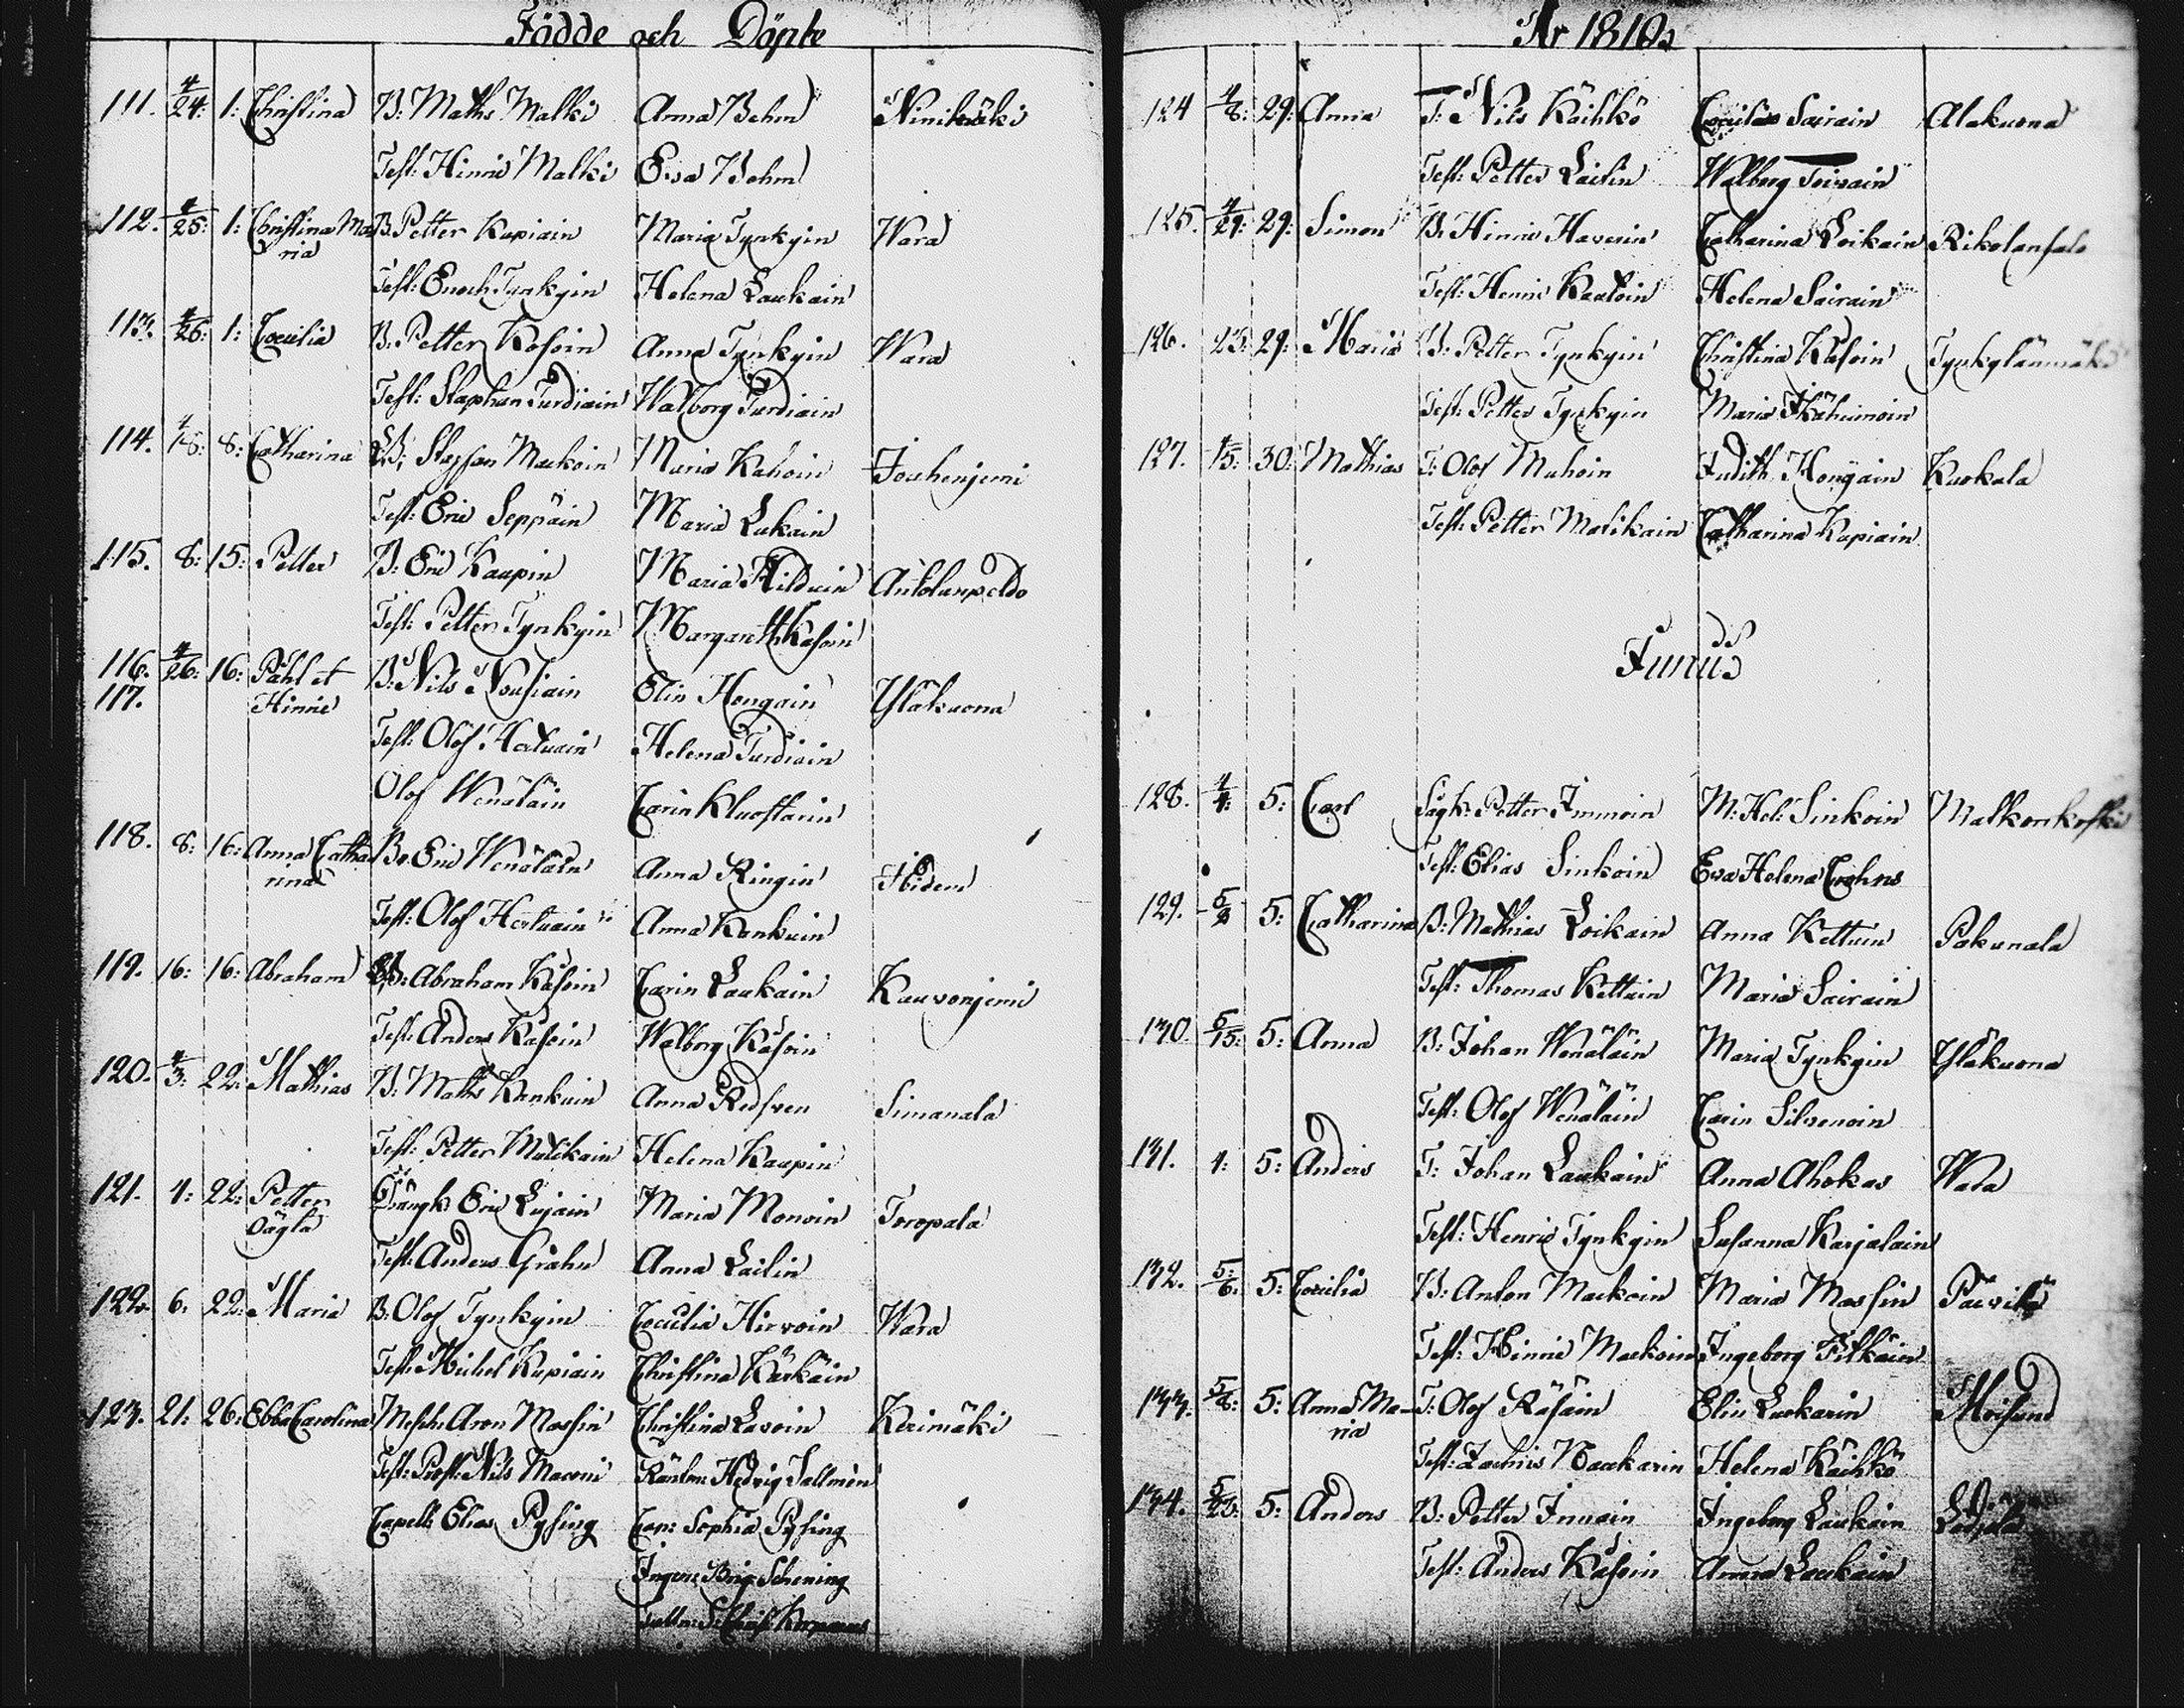 Födde och Döpte
111. 4/24: 1: Christina B: Maths Malki Anna Behm Niinimäki
Test: Hinric Malki Eva Behm
112. 4/25: 1: Christina Ma- B. Petter Kupiain Maria Tynkyin Wara
ria
Test: Enoch Tynkyin Helena Laukain
113. 4/26: 1: Coecilia B: Petter Kosoin Anna Tynkyin Wara
Test: Staphan Turdiain Walborg Turdiain
114. 4/18: 8: Catharina B: Staffan Mackoin Maria Kahoin Jouhenjemi
Test: Eric Seppäin Maria Lukain
115. 8: 15: Petter B: Eric Kaupin Maria Hilduin Anttolanpeldo
Test: Petter Tynkyin Margareth Käsoin
116. 4/26: 16: Påhl et B: Nils Nousiain Elin Hongain Yläkuona
117. Hinric
Test: Olof Hertuain Helena Turdiain
Olof Wenäläin Carin Kluostarin
118. 8: 16: Anna Catha- B. Eric Wenäläin Anna Ringin Ibidem
rina
Test: Olof Hertuain Anna Kankuin
119. 16: 16: Abraham B: Abraham Käsoin Carin Laukain Kauvonjemi
Test: Anders Käsoin Walborg Käsoin
120. 4/3: 22: Mathias B: Maths Kankuin Anna Redsven Simanala
Test: Petter Matikain Helena Kaupin
121. 4: 22: Petter Drängk: Eric Lujain Maria Monoin Toropala
Oägta
Test: Anders Grahn Anna Lailin
122. 6: 22: Maria B: Olof Tynkyin Coecilia Hirvoin Wara
Test: Michel Kupiain Christina Kärkäin
123. 21: 26: Ebba Carolina Christina Lavoin Kerimäki
Test: Prost: Nils Maconi Hedvig Sallmén
Capell: Elias Pysing Cap: Sophia Pysing
Brig: Schening
År 1810.
124 4/8: 29: Anna T: Nils Käihkö Coecilia Sairain Alakuona
Test: Petter Lailin Walborg Toivain
125. 4/29: 29: Simon B: Hinric Haverin Catharina Loikain Rikolansalo
Test: Henric Kautoin Helena Sairain
126. 23: 29: Maria B: Petter Tynkyin Christina Käsoin Tynkylänmäki
Test: Petter Tynkyin Maria Ikäheimoin
127. 4/15: 30: Mathias T: Olof Muhoin Judith Hongain Kuokala
Test: Petter Matikain Catharina Kupiain
Junius
128. 4/4: 5: Carl Petter Immoin M: Hel: Sinkoin Malkonkoski
Test: Elias Sinkoin Eva Helena
129. 5/2 5: Catharina B: Mathias Loikain Anna Kettuin Pakunala
Test: Thomas Kettuin Maria Sairain
130. 5/15: 5: Anna B: Johan Wenäläin Maria Tynkyin Yläkuona
Test: Olof Wenäläin Carin Silvenoin
131. 4: 5: Anders T: Johan Laukain Anna Ahokas Wara
Test: Henric Tynkyin Susanna Karjalain
132. 5/6: 5: Coecilia B: Anton Mackoin Maria Massin Päivilä
Test: Hinric Mackoin Ingeborg Pitkäin
133. 5/8: 5: Anna Ma- T: Olof Räsäin Elin Luckarin Moisund
ria
Test: Zachris Naukarin Helena Käihkö
134. 5/23: 5: Anders B: Petter Innain Ingeborg Laukain
Test: Anders Käsoin Anna Laukain